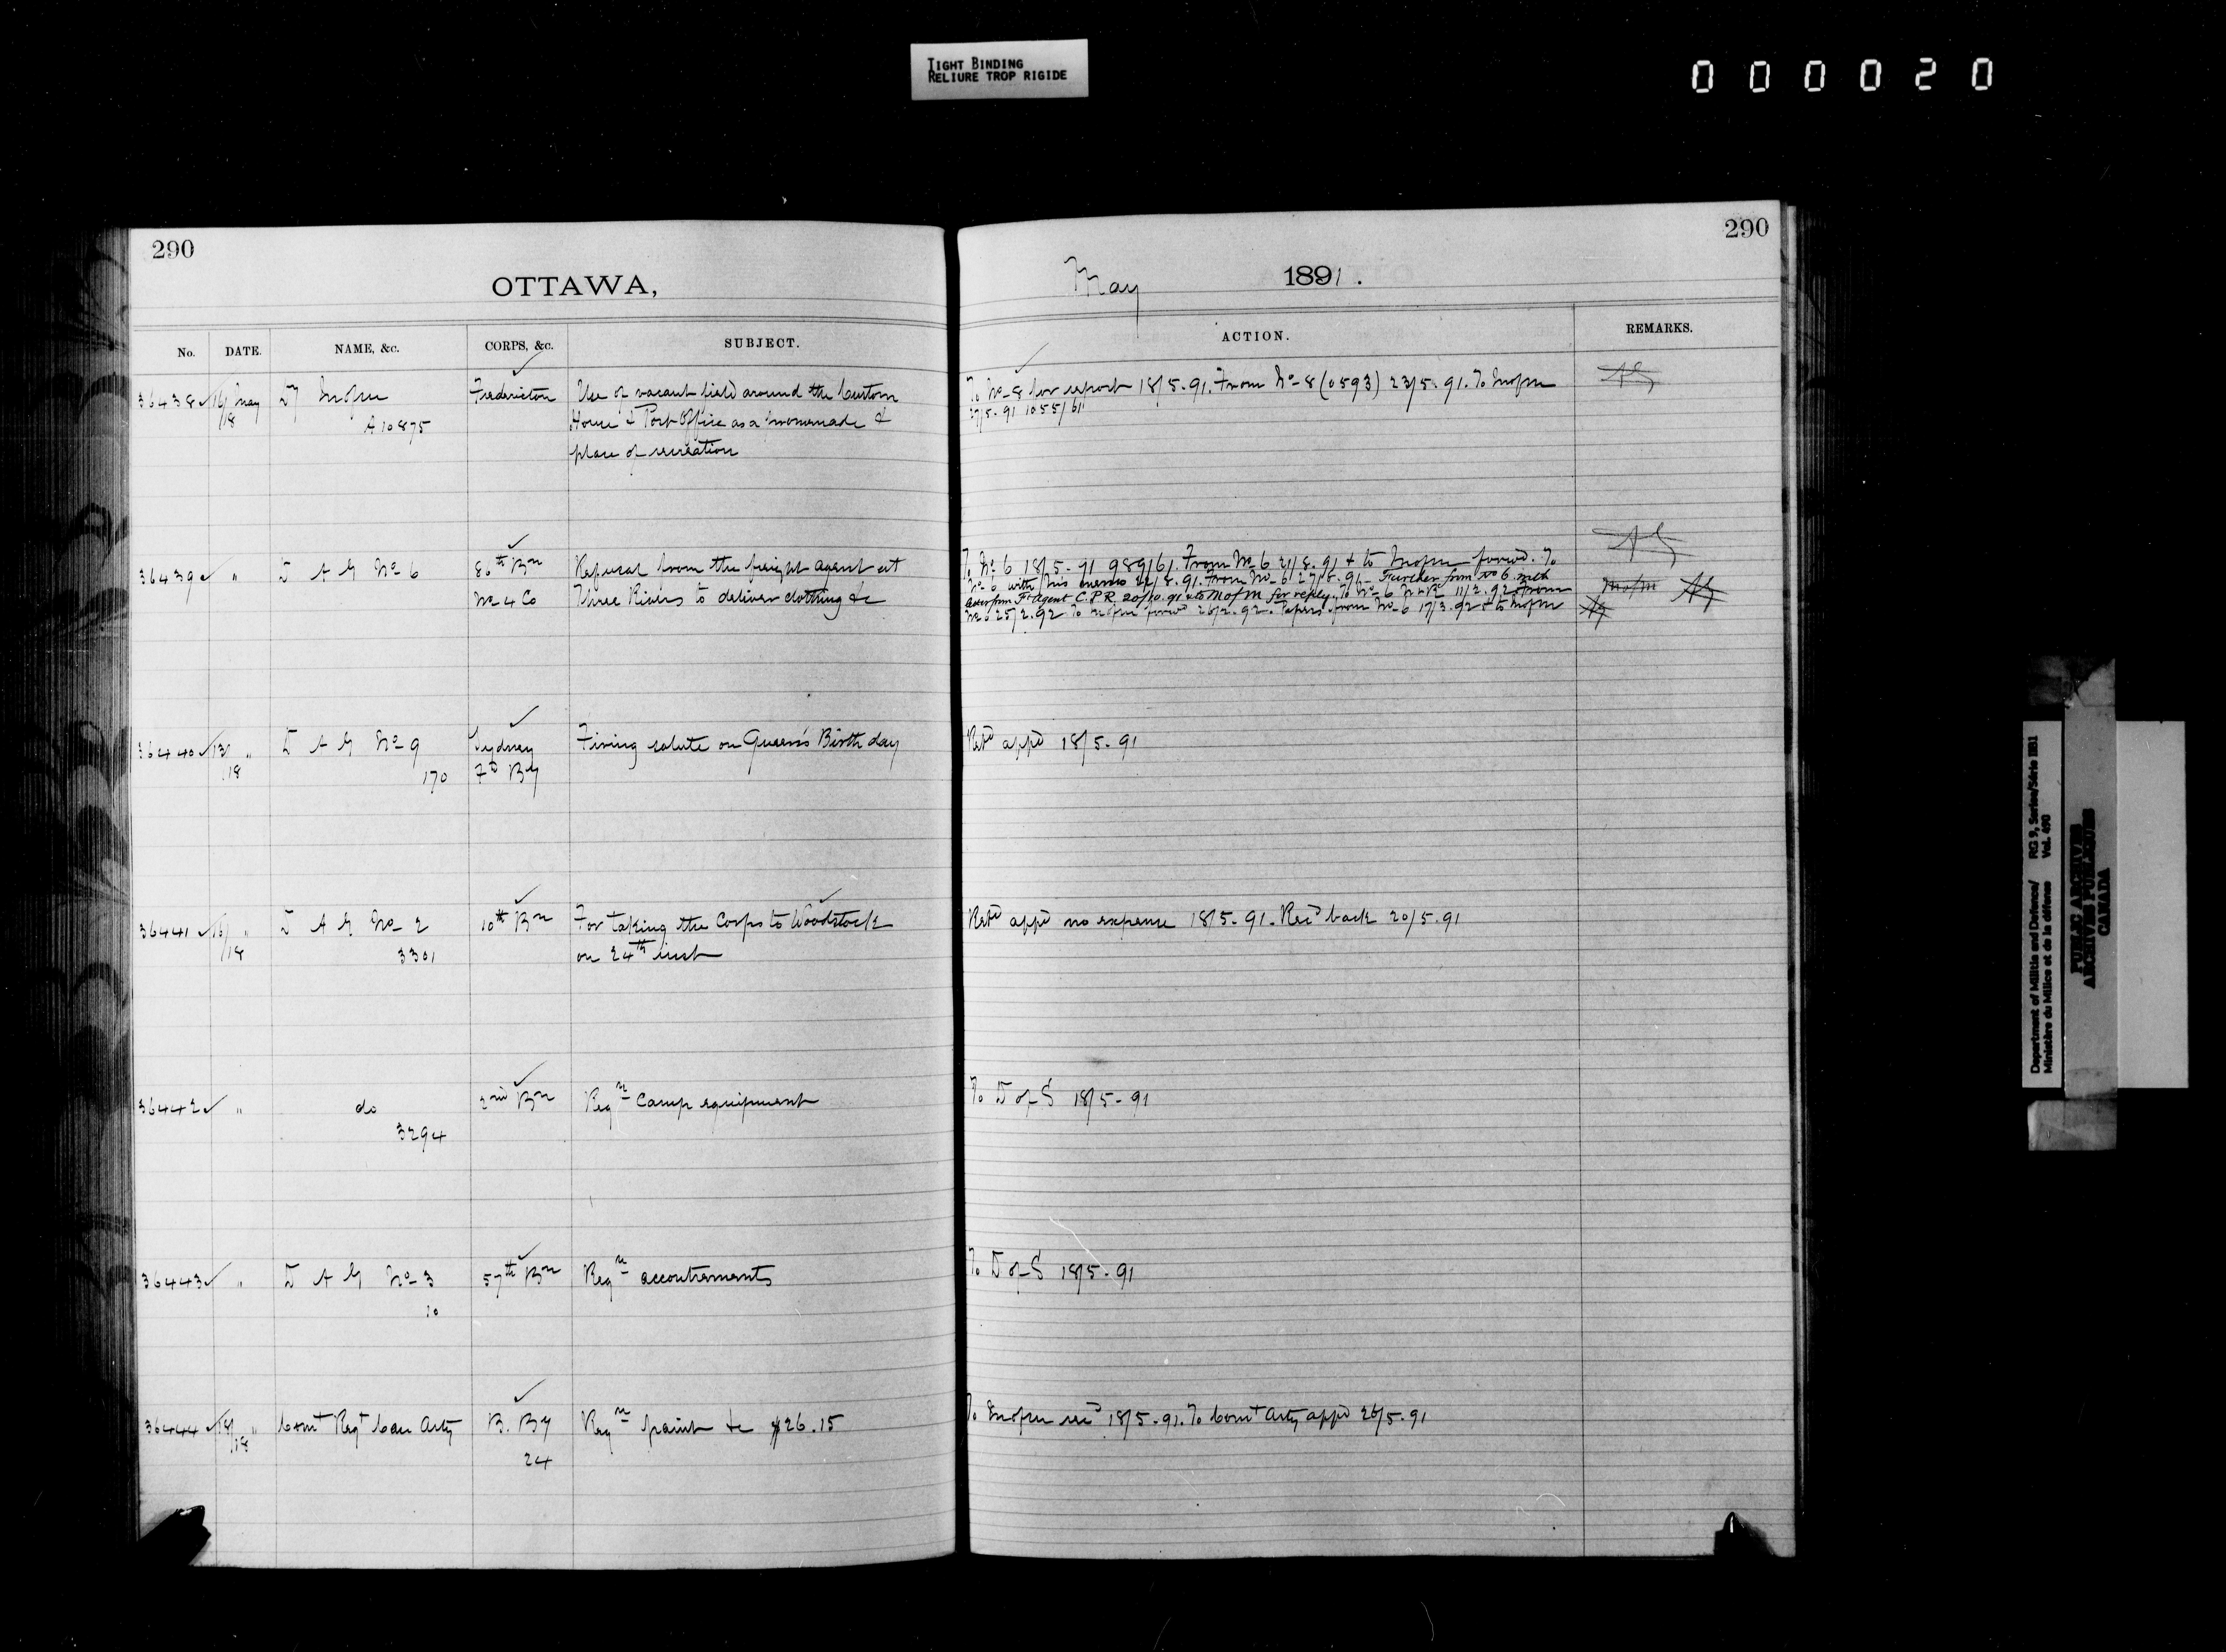 TIGHT BINDING
RELIURE TROP RIGIDE
000020
290
OTTAWA,
No. DATE. NAME, &c. CORPS, &c. SUBJECT.
36438 16/18 May D M of M Fredericton Use of vacant field around the Custom
A10875 House & Post Office as a promenade &
place of recreation
36439 " D A G No 6 86th Bn Refusal from the freight agent at
No 4 Co Three Rivers to deliver clothing &c
36440 13/18 " D A G No 9 Sydney Firing salute on Queen's Birth day
170 By
36441 16/18 " D A G No 2 10th Bn For taking the Corps to Woodstock
3301 on 24th inst
36442 " do 2nd Bn Reqn Camp equipment
3294
36443 " D A G No 3 57th Bn Reqn accoutrements
10
36444 18/18 " Comt Regt Can Arty B. By Reqn paint &c $26.15
24
290
May 1891.
ACTION. REMARKS.
To No 8 for report 18/5.91. From No 8 (0593) 23/5.91. To M of M
27/5.91 1055/61
To No 6 18/5.91 989/61. From No 6 21/8.91 & to M of M forwd. To
No 6 with this memo 22/8.91. From No 6 27/8.91. Further from No 6 with
letter from Ft Agent C.P.R. 20/10.91 & to M of M for reply. To No 6 11/2.92. From M of M
No 6 25/2.92 To M of M forwd 26/2.92. Papers from No 6 17/3.92 & to M of M
Retd appd 18/5.91
Retd appd no expense 18/5.91. Recd back 20/5.91
To D of S 18/5.91
To D of S 18/5.91
To M of M recd 18/5.91. To Comt Arty appd 26/5.91
Department of Militia and Defence/ RG 9, Series/Série IIB1
Ministère du Milice et de la défense Vol. 490
PUBLIC ARCHIVES
ARCHIVES PUBLIQUES
CANADA